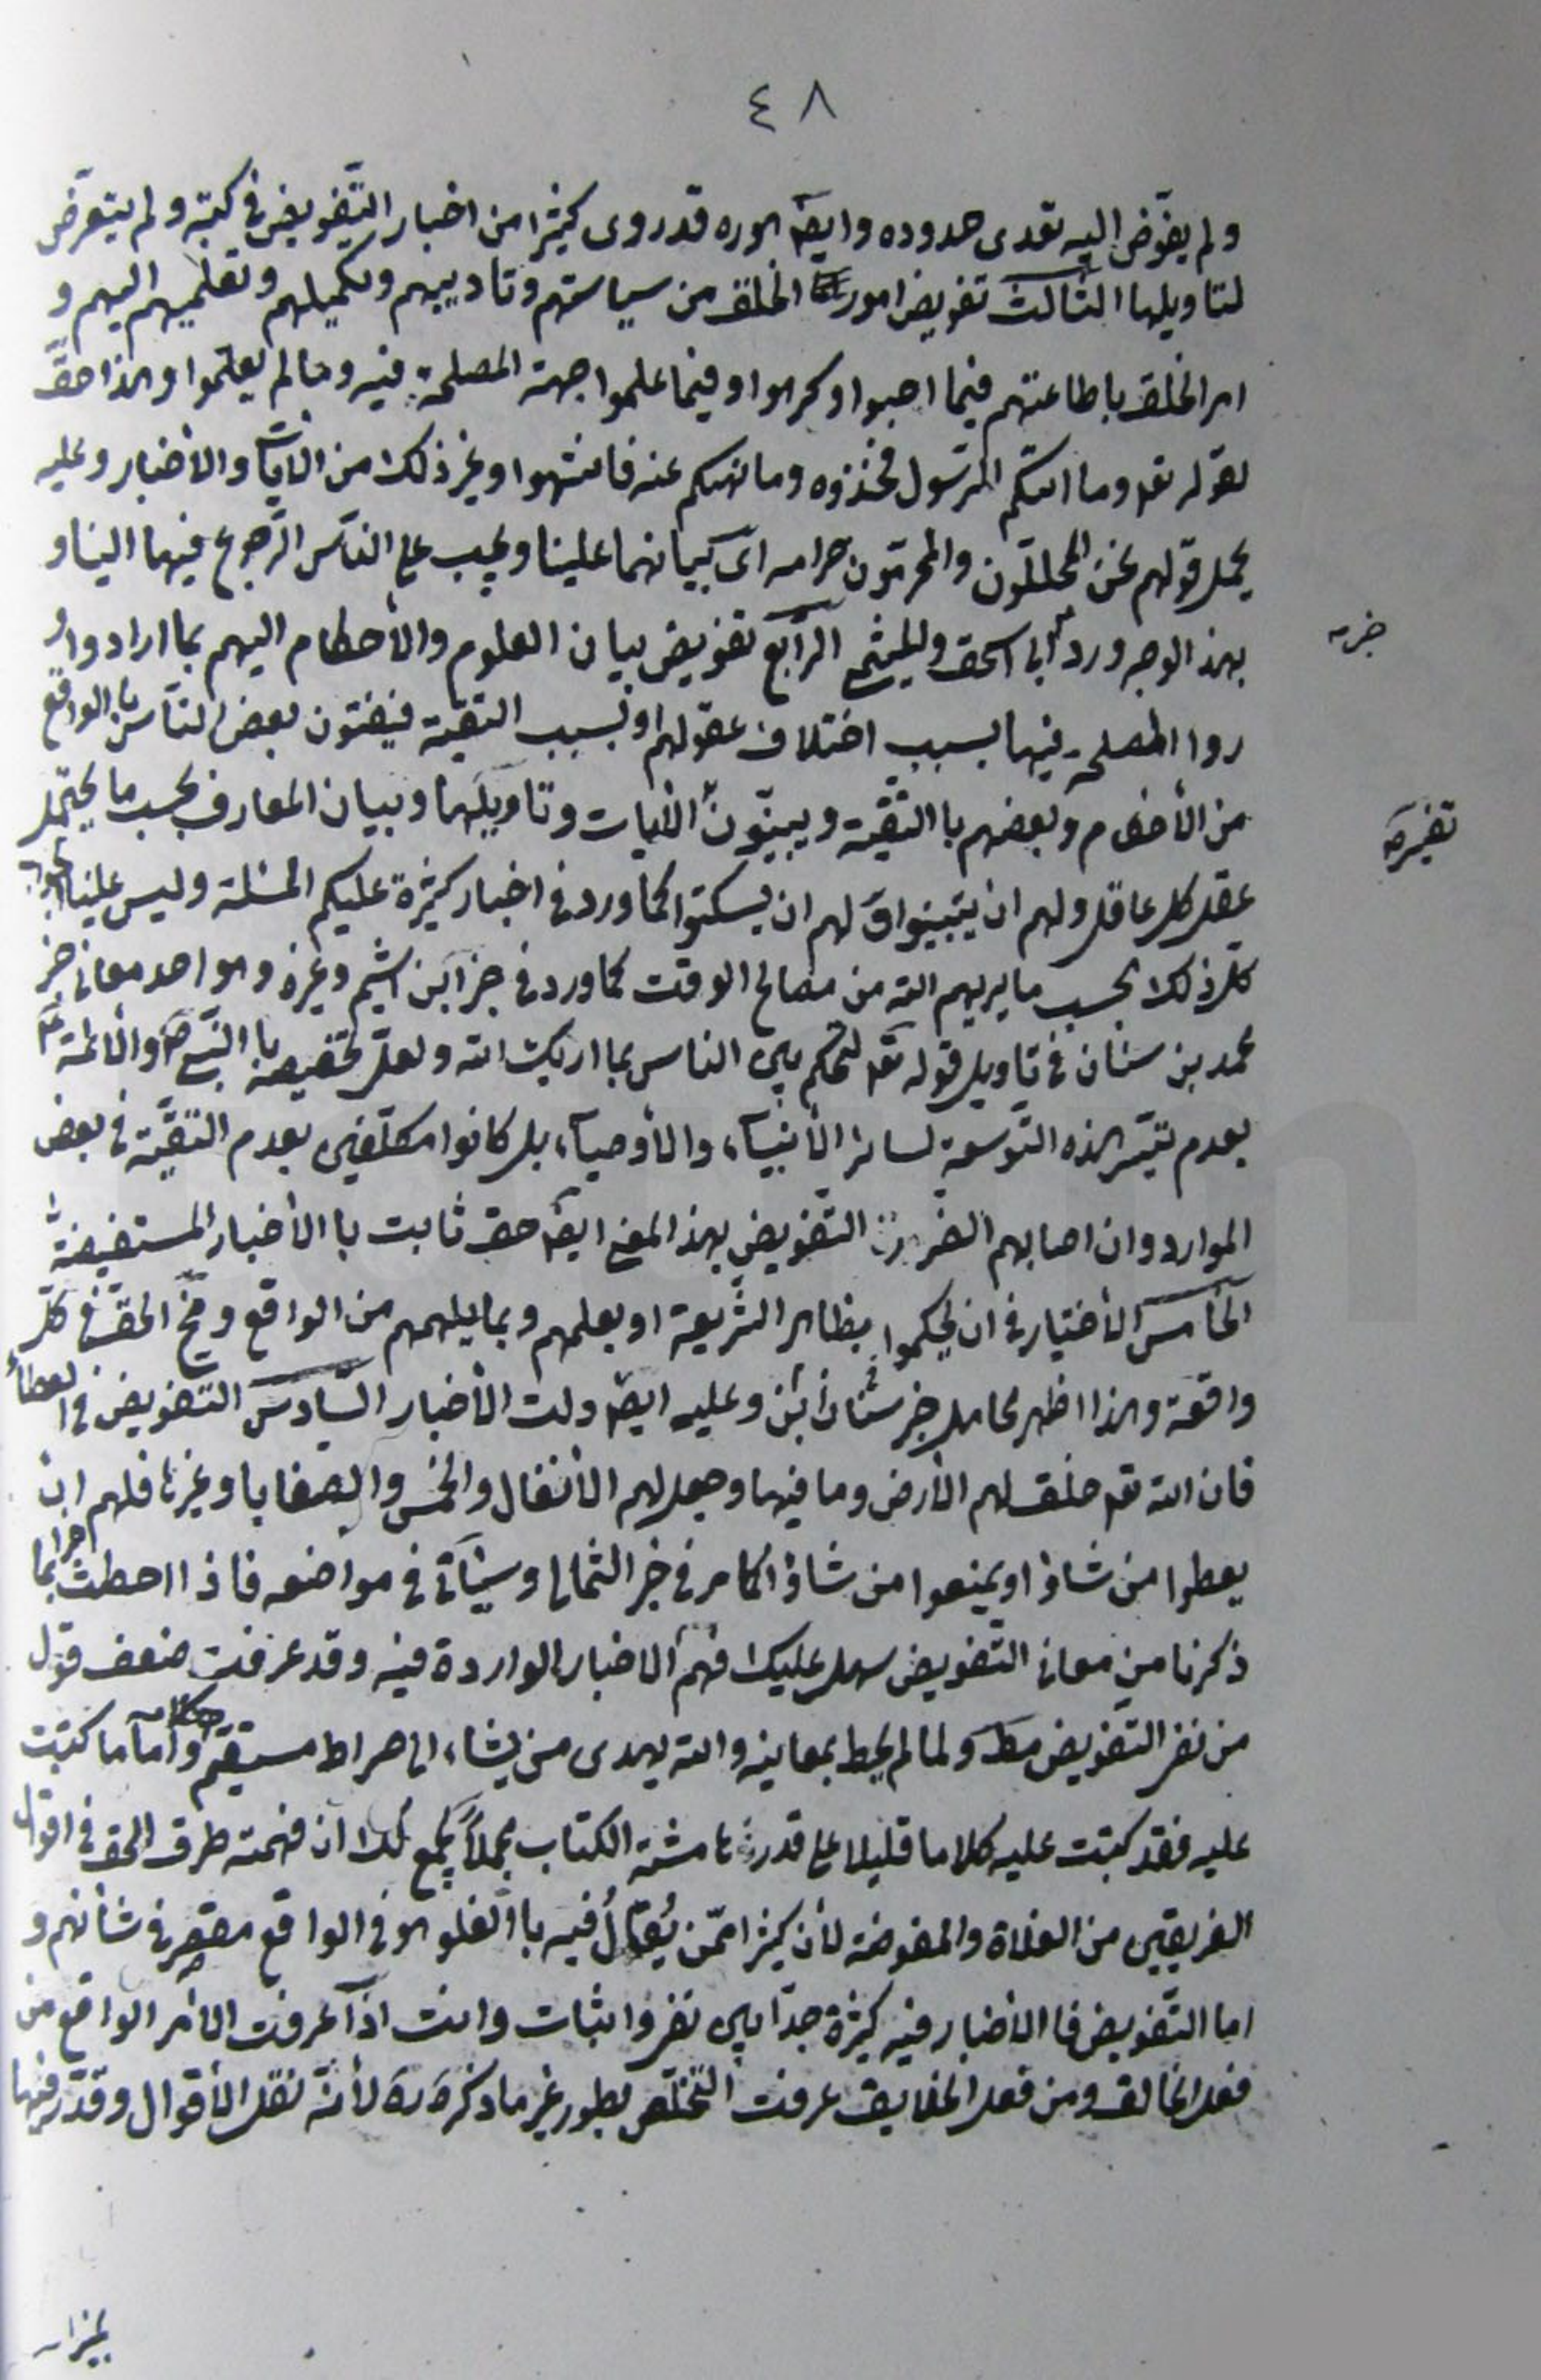 ٤٨
ولم يفوّض اليه تعدى حدوده وايضا هو ره قد روى كثيرا من اخبار التّفويض فى كتبه ولم يتعرّض
لتاويلها الثالث تفويض امور الخلق من سياستهم وتاديبهم وتكميلهم وتعليمهم اليهم و
امر الخلق باطاعتهم فيما احبوا وكرهوا وفيما علموا جهة المصلحة فيه وما لم يعلموا وهذا حقّ
لقوله تع وما اتيكم الرّسول فخذوه وما نهيكم عنه فانتهوا وغير ذلك من الايات والأخبار وعليه
يحمل قولهم نحن المحللّون والمحرّمون حرامه اى بيانهما علينا ويجب على النّاس الرّجوع فيهما الينا و
بهذا الوجه ورد ابى اسحق والميثمى الرّابع تفويض بيان العلوم والأحكام اليهم بما ارادوا و
خبر
روا المصلحة فيها بسبب اختلاف عقولهم او بسبب التقية فيفتون بعض النّاس بالواقع
من الأحكام وبعضهم باالتّقيّة ويبيّنون الأيات وتاويلها وبيان المعارف بحسب ما يحتمل
تفسير
عقل كل عاقل ولهم ان يتبينوا ولهم ان يسكتوا كما ورد فى اخبار كثيرة عليكم المسئلة وليس علينا الجواب
كلّ ذلك بحسب ما يريهم الله من مصالح الوقت كما ورد فى خبر ابن اشيم وغيره وهو احد معانى خبر
محمد بن سنان فى تاويل قوله تع لتحكم بين الناس بما اريك الله ولعلّ تخصيصه باالنّبىّ ص والأئمة ع
بعدم تيسّر هذه التّوسعة لسائر الأنبياء والأوصياء بل كانوا مكلّفين بعدم التقيّة فى بعض
الموارد وان اصابهم الضرر التّفويض بهذا المعنى ايضا حق ثابت باالأخبار المستفيضة
الخامس الأختيار فى ان يحكموا بظاهر الشّريعة او بعلمهم وبما يلهمهم من الواقع ومخّ الحقّ فى كلّ
واقعة وهذا اظهر محامل خبر ابن سنان وعليه ايضا دلت الأخبار السّادس التفويض فى العطاء
فان الله تع خلق لهم الأرض وما فيها وجعل لهم الأنفال والخمس والصفايا وغيرها فلهم ان
يعطوا من شاؤا ويمنعوا من شاؤا كما مر فى خبر الثمالى وسيأتى فى مواضعه فاذا احطت خبرا بما
ذكرنا من معانى التّفويض سهل عليك فهم الاخبار الواردة فيه وقد عرفت ضعف قول
من نفى التّفويض مط ولما لم يحط بمعانيه والله يهدى من يشاء الى صراط مستقيم واما ما كتبت
عليه فقد كتبت عليه كلاما قليلا على قدر هامشة الكتاب مجملاً يجمع لك ان فهمته طرق الحق فى اقوال
الفريقين من الغلاة والمفوضة لأن كثيرا ممّن يُقالُ فيه باالغلو هو فى الواقع مقصّر فى شأنهم و
اما التّفويض فاالأخبار فيه كثيرة جدّا بين نفى واثبات وانت اذا عرفت الأمر الواقع من
فعل الخالق ومن فعل الخلايق عرفت التّخلّص بطور غير ما ذكره ره لأنّه نقل الأقوال وقدّر فيها